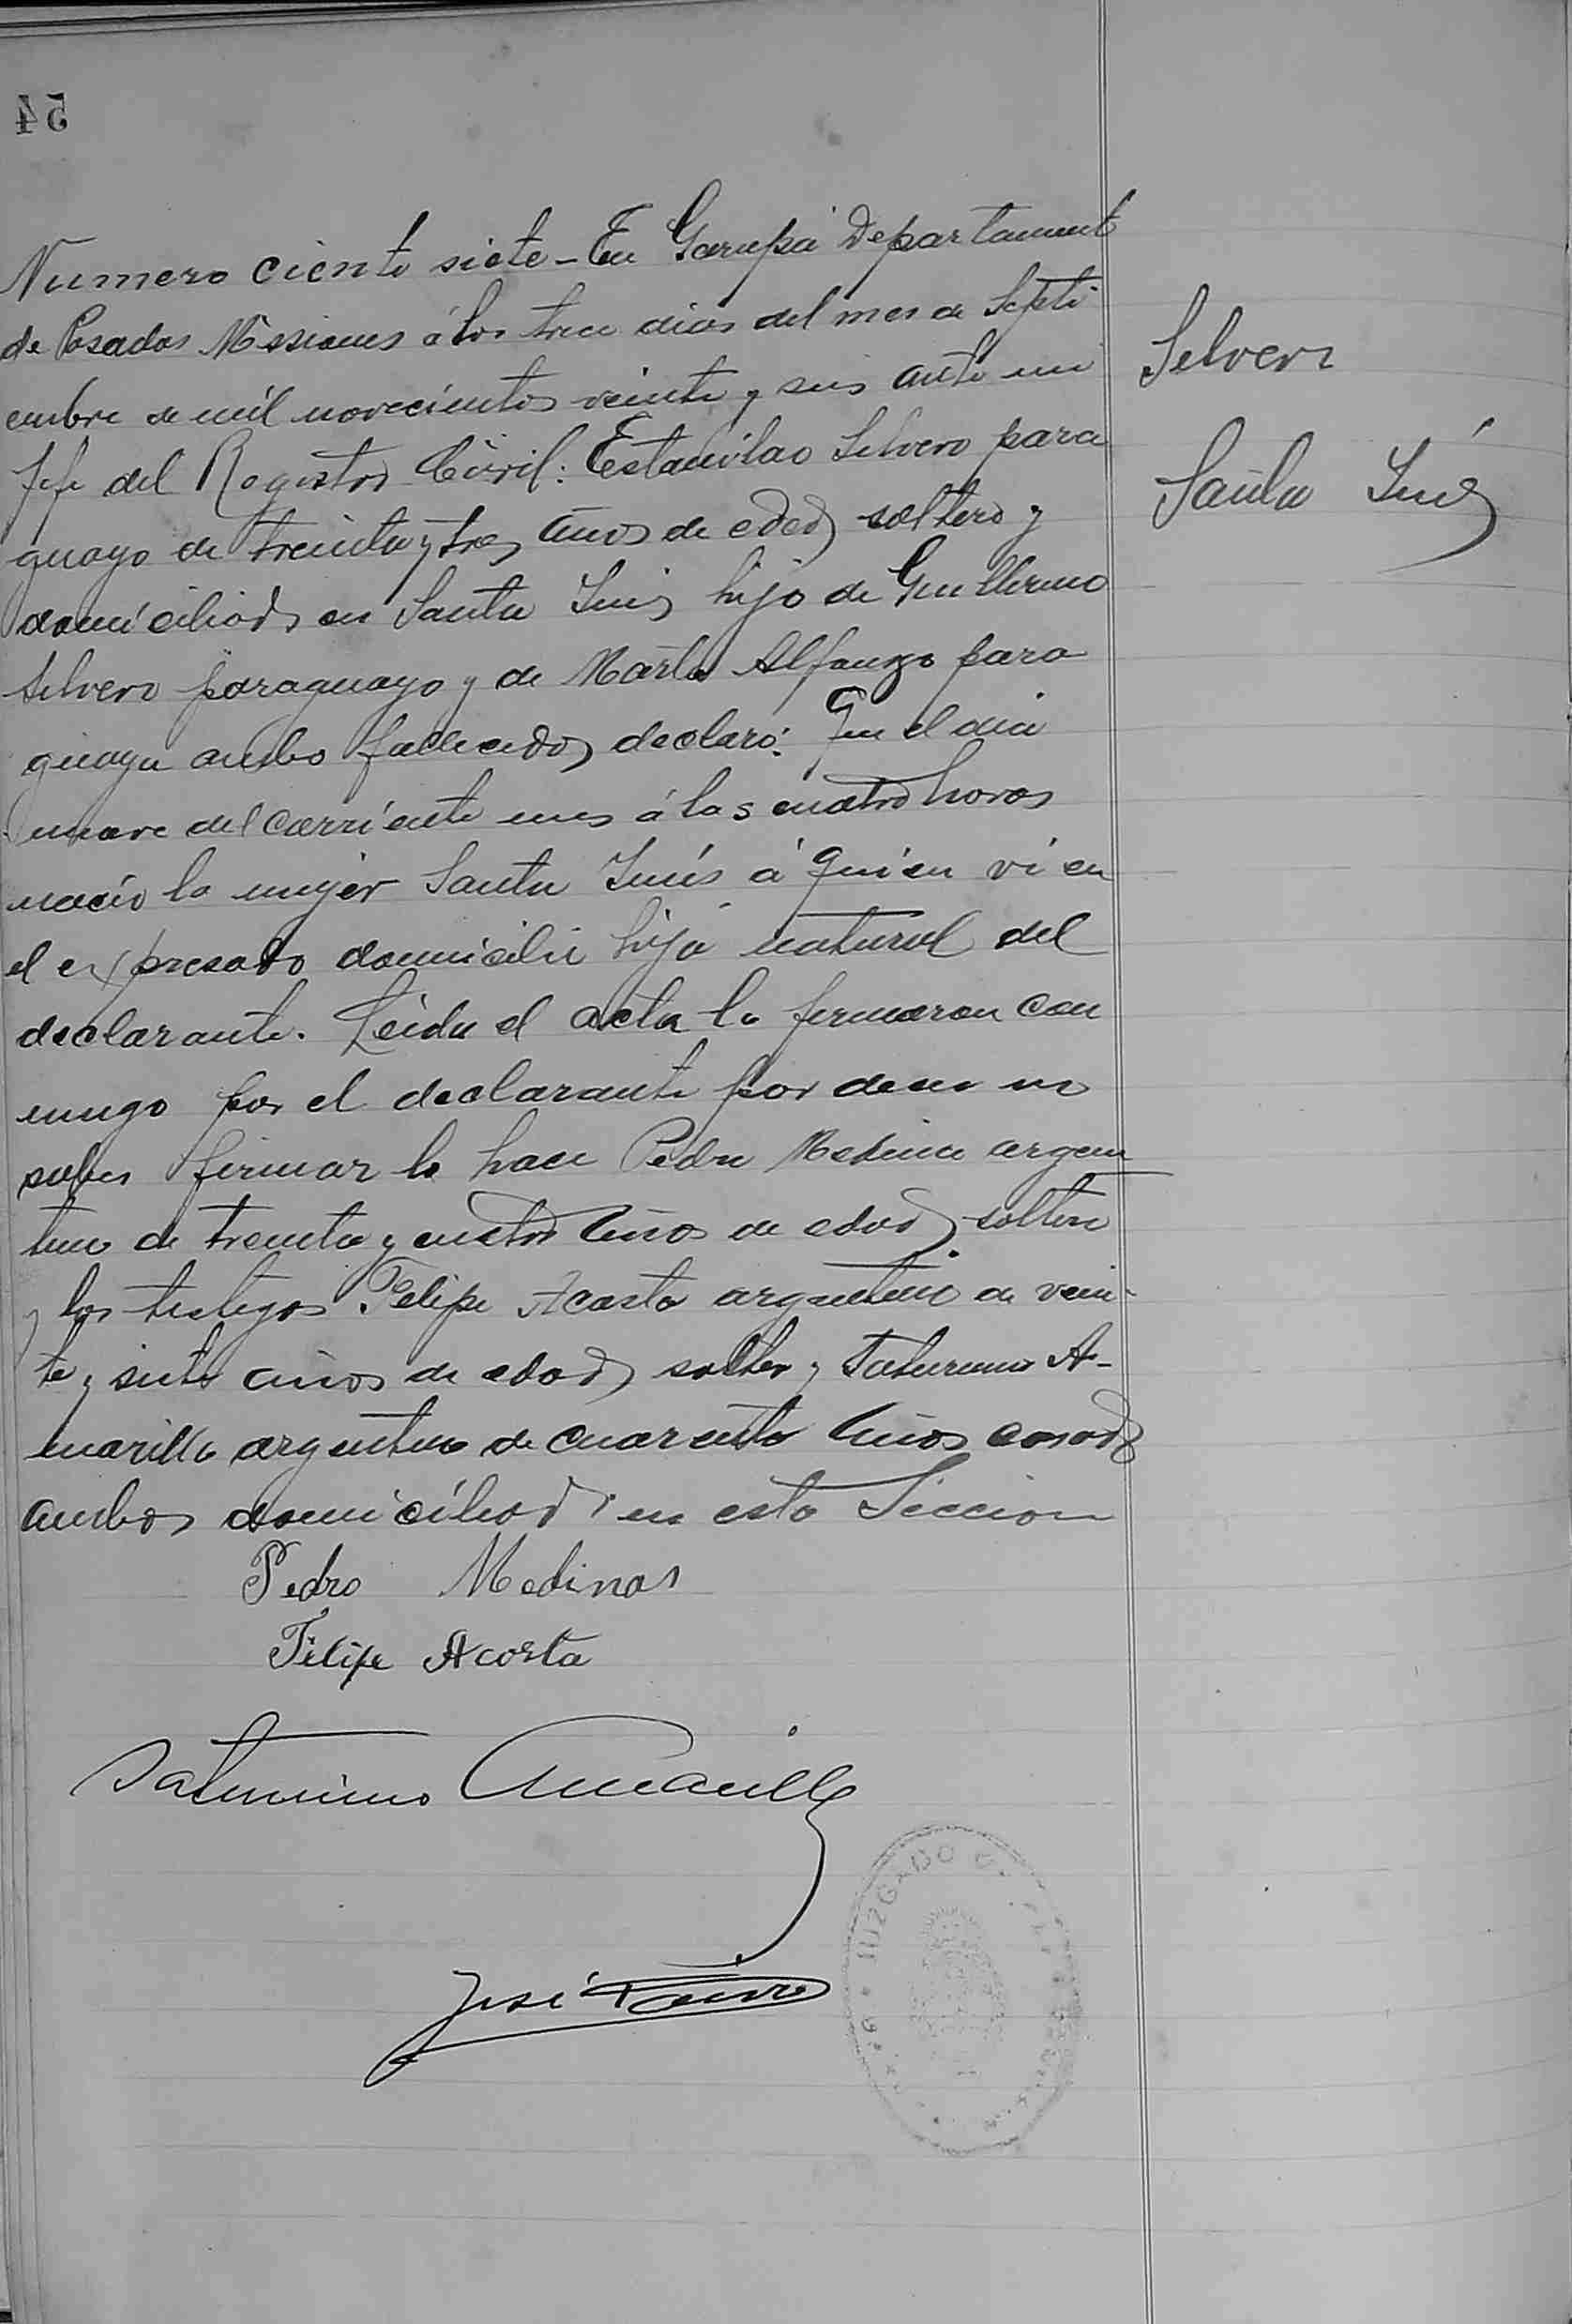 54
Numero ciento siete - En Garupá Departament
de Posadas Misiones á los trece dias del mes de Septi-
embre de mil novecientos veinte y seis ante mi
Jefe del Registro Civil: Estanislao Silvero para
guayo de treinta y tres años de edad soltero y
domiciliado en Santa Inés hijo de Guillermo
Silvero paraguayo y de Marta Alfonzo para
guaya ambo fallecidos declaró: Que el dia
nueve del corriente mes á las cuatro horas
nació la mujer Santa Inés á quien vi en
el expresado domicilio hija natural del
declarante. Leida el acta la firmaron con
migo por el declarante por decir no
saber firmar lo hace Pedro Medina argen
tino de treinta y cuatro años de edad soltero
y los testigos Felipe Acosta argentino de vein-
te y siete años de edad soltero y Saturnino A-
marilla argentino de cuarenta años casado
ambos domiciliad en esta Seccion
Pedro Medinas
Felipe Acosta
Saturnino Amarilla
José
JUZGADO
Silvero
Santa Inés